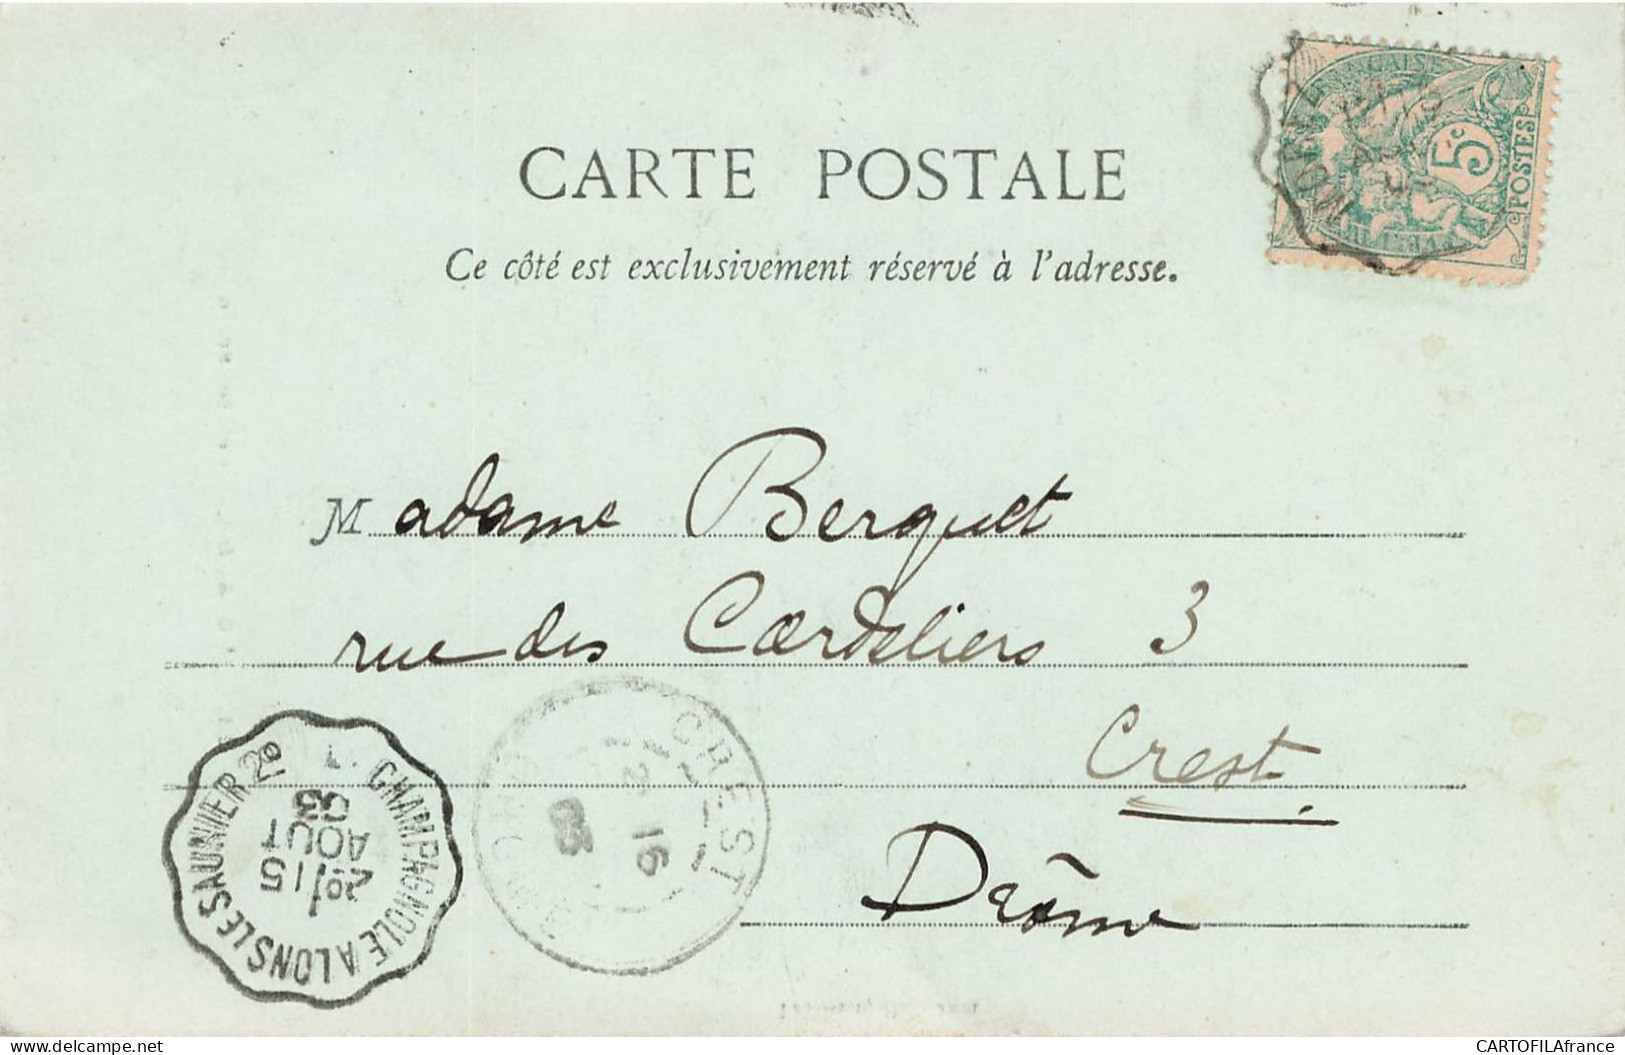 CARTE POSTALE
Ce côté est exclusivement réservé à l'adresse.
5c
POSTES
Madame Berquet
rue des Cordeliers 3
Crest
Drôme
CHAMPAGNOLE A LONS LE SAUNIER 2º
2º/15
AOUT
03
CREST
16
03
DROME
CARTOFILAfrance